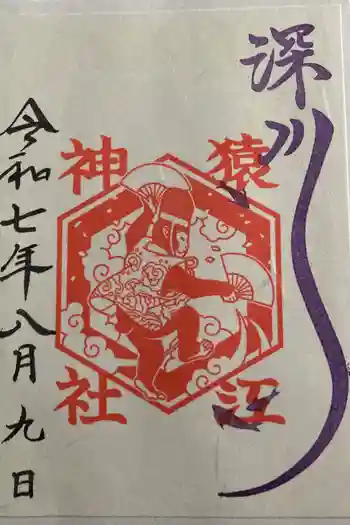 深川
猿江
神社
令和七年八月九日